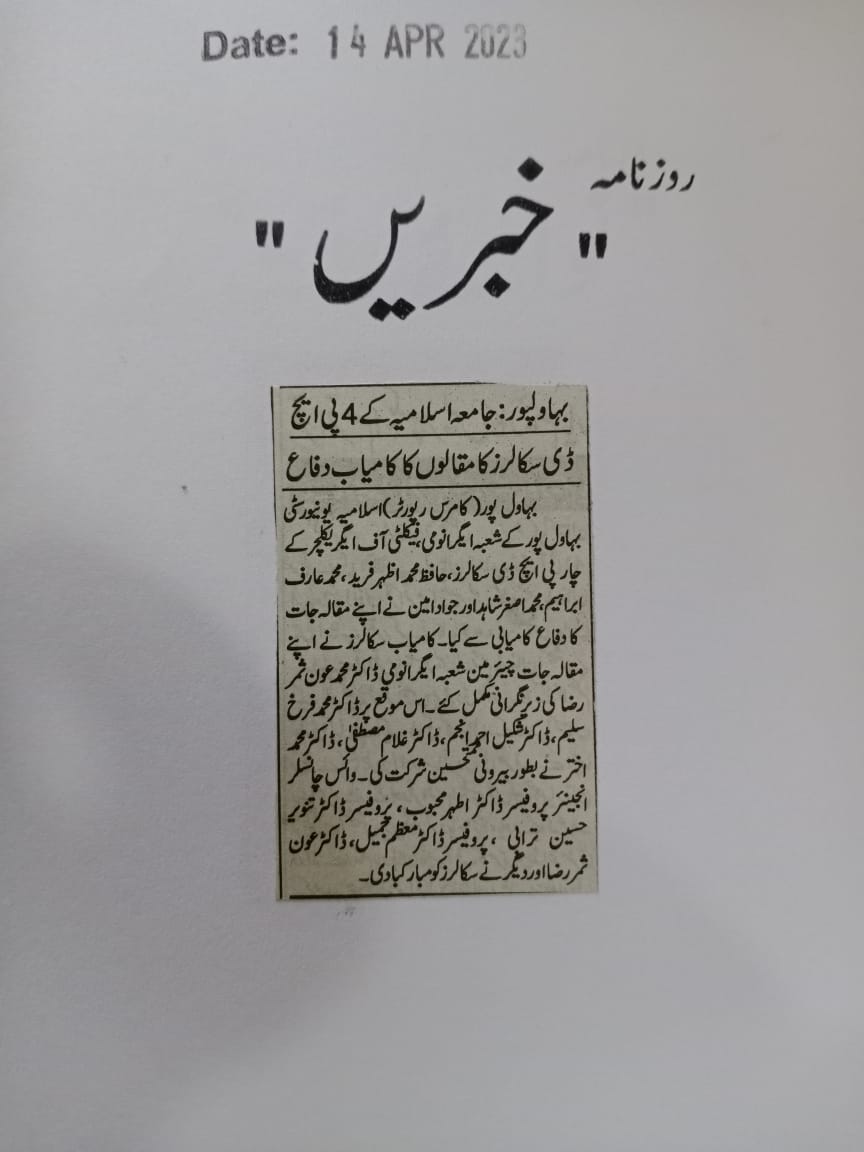 Date: 14 APR 2023
روزنامہ
"خبریں"
بہاولپور: جامعہ اسلامیہ کے 4 پی ایچ
ڈی سکالرز کا مقالوں کا کامیاب دفاع
بہاول پور (کامرس رپورٹر) اسلامیہ یونیورسٹی
بہاول پور کے شعبہ ایگرانومی، فیکلٹی آف ایگریکلچر کے
چار پی ایچ ڈی سکالرز، حافظ محمد اظہر فرید، محمد عارف
ابراہیم، محمد اصغر شاہد اور جواد امین نے اپنے مقالہ جات
کا دفاع کامیابی سے کیا۔ کامیاب سکالرز نے اپنے
مقالہ جات چیئرمین شعبہ ایگرانومی ڈاکٹر محمد عون ثمر
رضا کی زیر نگرانی مکمل کئے۔ اس موقع پر ڈاکٹر محمد فرخ
سلیم، ڈاکٹر شکیل احمد انجم، ڈاکٹر غلام مصطفیٰ، ڈاکٹر محمد
اختر نے بطور بیرونی تحسین شرکت کی۔ وائس چانسلر
انجینئر پروفیسر ڈاکٹر اطہر محبوب، پروفیسر ڈاکٹر تنویر
حسین ترابی، پروفیسر ڈاکٹر معظم جمیل، ڈاکٹر عون
ثمر رضا اور دیگر نے سکالرز کو مبارکباد دی۔